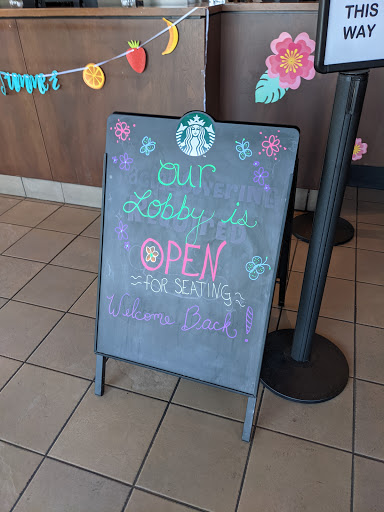 THIS
WAY
Summer
our
Lobby is
OPEN
~FOR SEATING~
Welcome Back